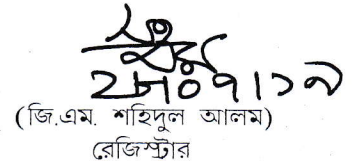 ২৮।০৭।১৯
(জি.এম. শহিদুল আলম)
রেজিস্টার